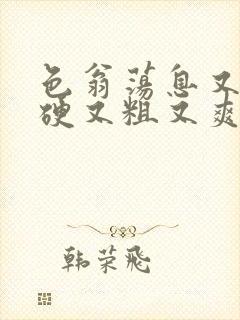 色翁荡息又
硬又粗又爽
韩荣飛